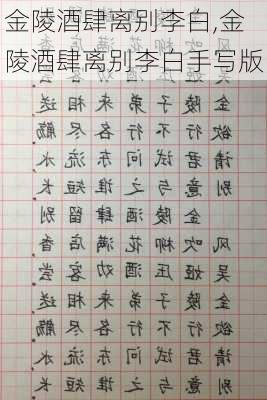 金陵酒肆离别李白,金
陵酒肆离别李白手写版
金陵子弟来相送
欲行不行各尽觞
请君试问东流水
别意与之谁短长
金陵酒肆留别
风吹柳花满店香
吴姬压酒劝客尝
金陵子弟来相送
欲行不行各尽觞
请君试问东流水
别意与之谁短长